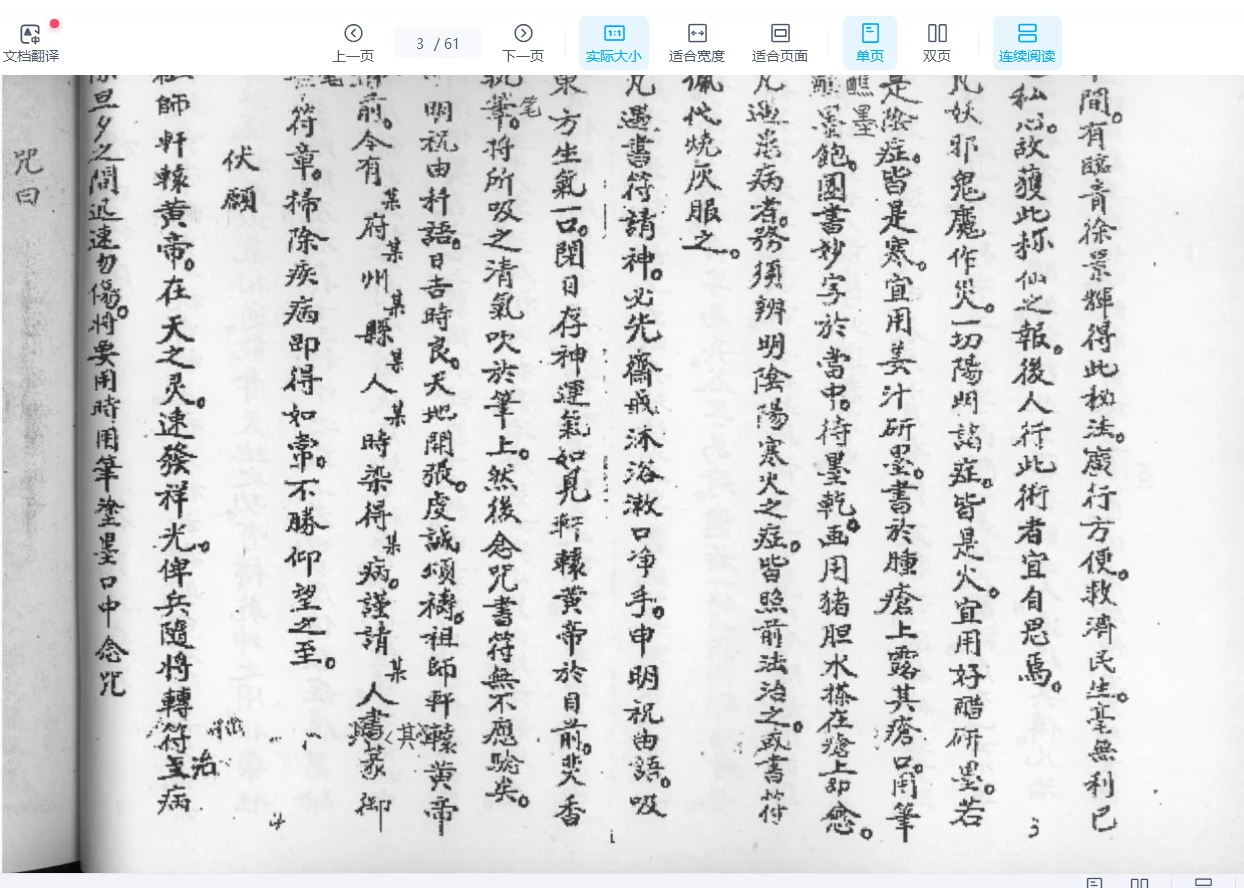 文档翻译
上一页
3 / 61
下一页
1:1
实际大小
适合宽度
适合页面
单页
双页
连续阅读
间。有臨音徐景輝得此秘法。廣行方便。救濟民生。毫無利己
私心。故獲此称仙之報。後人行此術者宜自思焉。
3
凡妖邪鬼魔作災。一切陽明諸症。皆是火。宜用好醋研墨。若
是陰症。皆是寒。宜用姜汁研墨。書於腫瘡上露其瘡口。用筆
蘸墨
蘸墨飽。圈書妙字於當中。待墨乾。画用猪胆水搽在瘡上即愈。
凡遇患病者。務須辨明陰陽寒火之症。皆照前法治之。或書符
佩化燒灰服之。
凡遇書符請神。必先齋戒沐浴漱口净手。申明祝由語。吸
東方生氣一口。閉目存神運氣如見軒轅黃帝於目前。焚香
笔
執筆。将所吸之清氣吹於筆上。然後念咒書符無不應驗矣。
明祝由科語。日吉時良。天地開張。虔誠頌禱。祖師軒轅黃帝
前。今有某府某州某縣某人某時染得某病。謹請某人書篆御
其
符章。掃除疾病即得如常。不勝仰望之至。
4
伏願
祖師軒轅黃帝。在天之灵。速發祥光。俾兵隨将轉符至病
治
除旦夕之間迅速勿傷。將要用時用筆塗墨口中念咒
咒曰